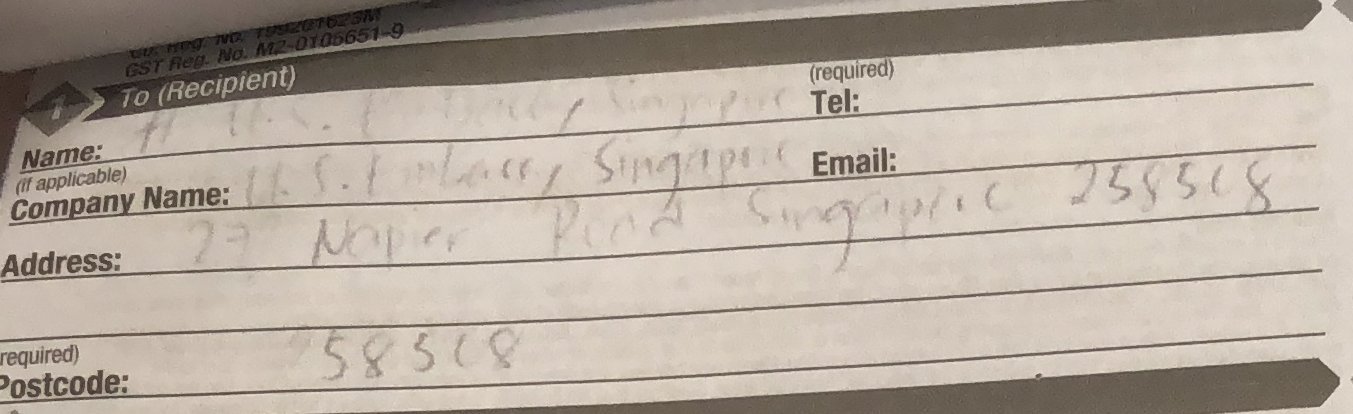 Co. Reg. No. 199201623M
GST Reg. No. M2-0105651-9
1 To (Recipient)
(required)
Name: U.S. Embassy, Singapore Tel:
(if applicable)
Company Name: U.S. Embassy Singapore Email:
Address: 27 Napier Road Singapore 258508
(required)
Postcode: 58508